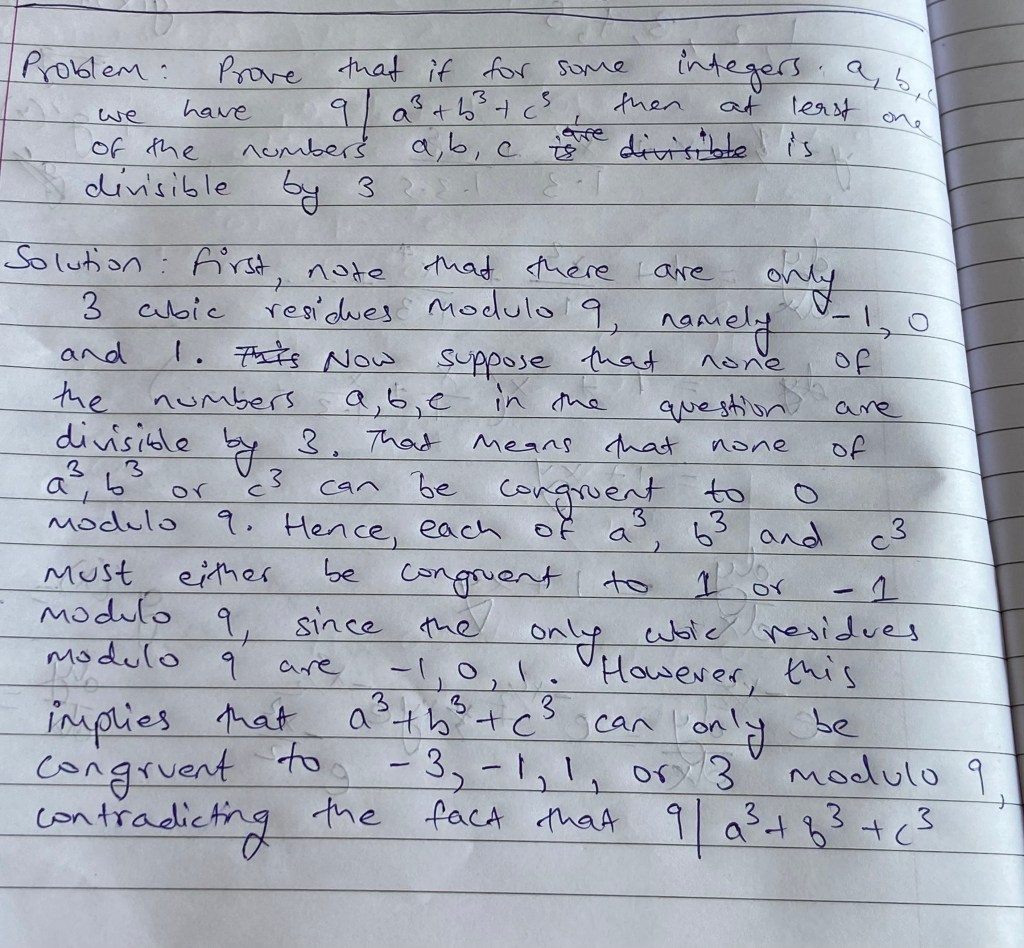 Problem: Prove that if for some integers a, b, c
we have 9 | a³ + b³ + c³, then at lerst one
of the numbers a, b, c is are divisible is
divisible by 3
Solution: first, note that there are only
3 cubic residues modulo 9, namely -1, 0
and 1. This Now suppose that none of
the numbers a, b, c in the question are
divisible by 3. That means that none of
a³, b³ or c³ can be congruent to 0
modulo 9. Hence, each of a³, b³ and c³
must either be congruent to 1 or -1
modulo 9, since the only cubic residues
modulo 9 are -1, 0, 1. However, this
implies that a³ + b³ + c³ can only be
congruent to -3, -1, 1, or 3 modulo 9,
contradicting the fact that 9 | a³ + b³ + c³